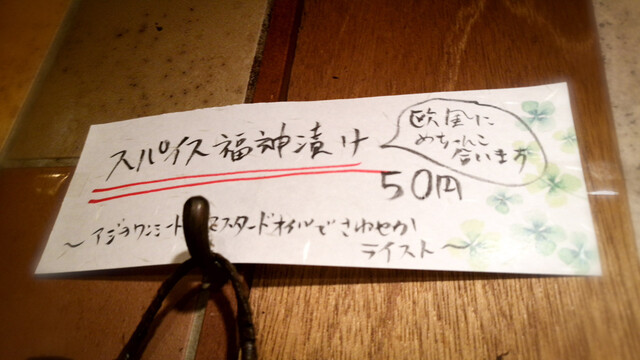 スパイス福神漬け
欧風に
めちゃんこ
合います
50円
〜アジョワンシード マスタードオイルでさわやか
テイスト〜